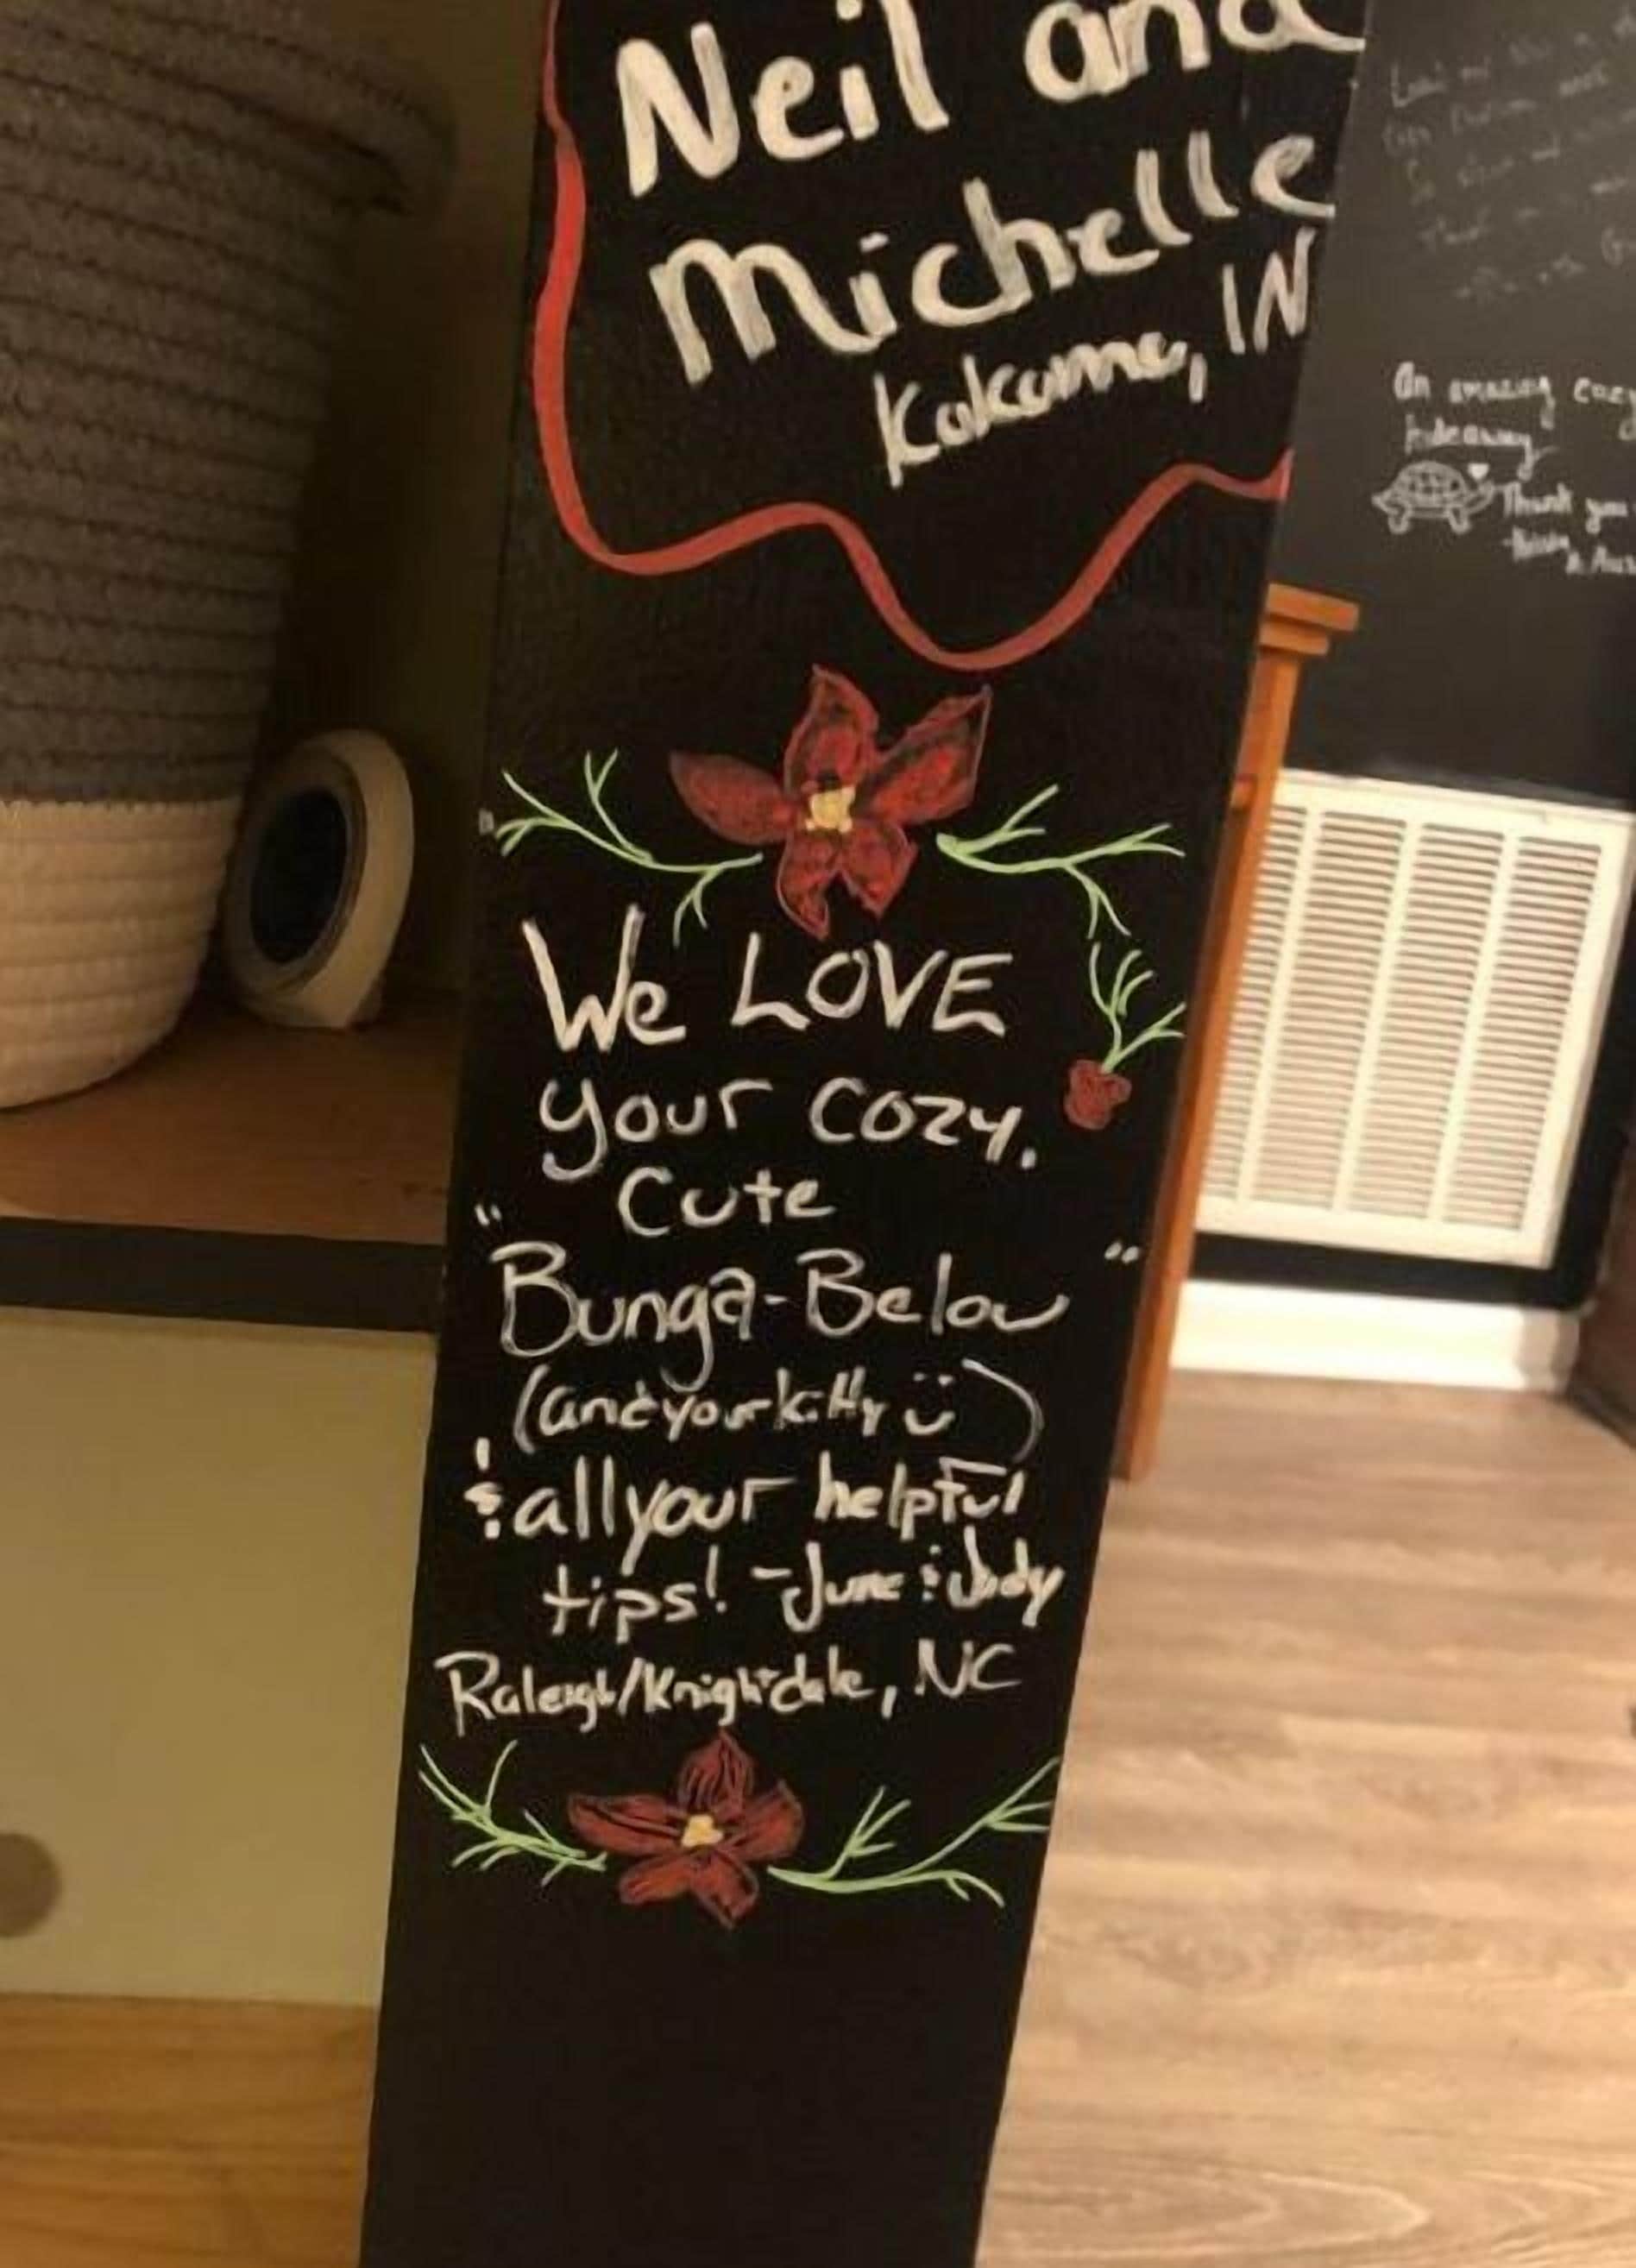 Neil and
Michelle
Kokomo, IN
We LOVE
your cozy,
Cute
"Bunga-Below"
(and your kitty ü)
& all your helpful
tips! -June & Judy
Raleigh/Knightdale, NC
An amazing cozy
hideaway
Thank you